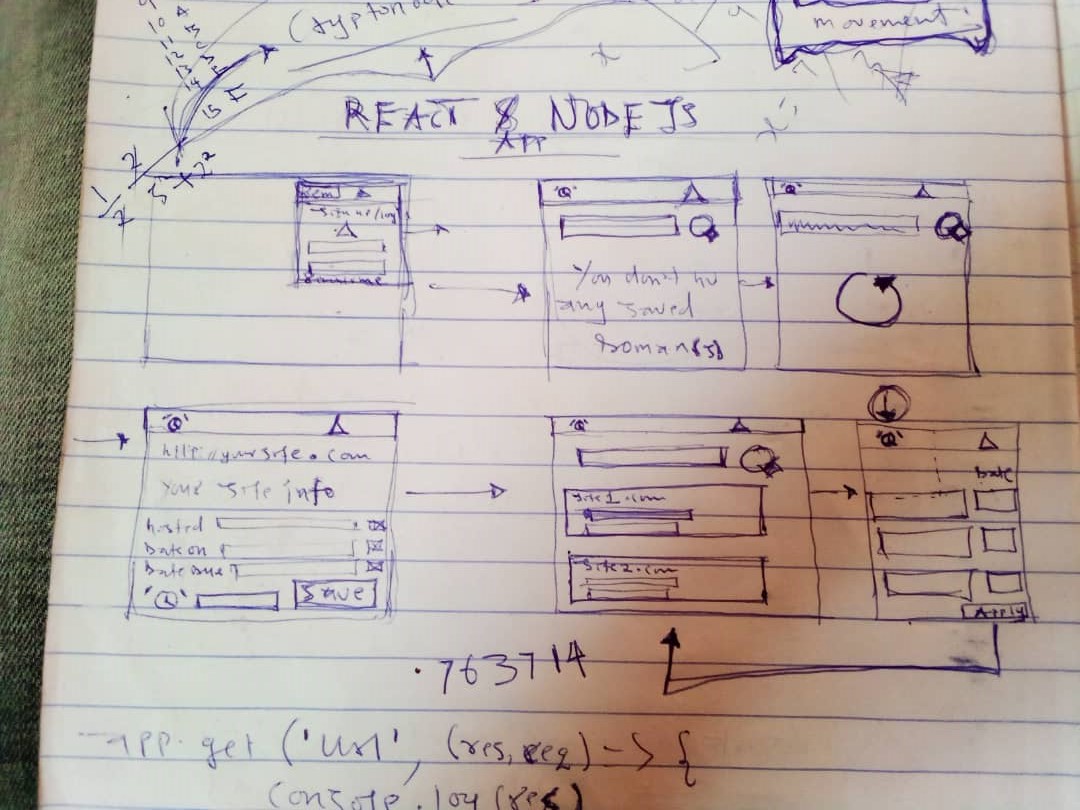 movement.
REACT & NODE JS
APP
'Q'
'Q'
You don't hv
any saved
Domain(s)
'Q'
http://yoursite.com
Your Site info
hosted
Date on
Date Due
Save
'Q'
Site1.com
Site2.com
'Q'
Date
Apply
.763714
app.get ('url', (res, req) => {
console.log(res)